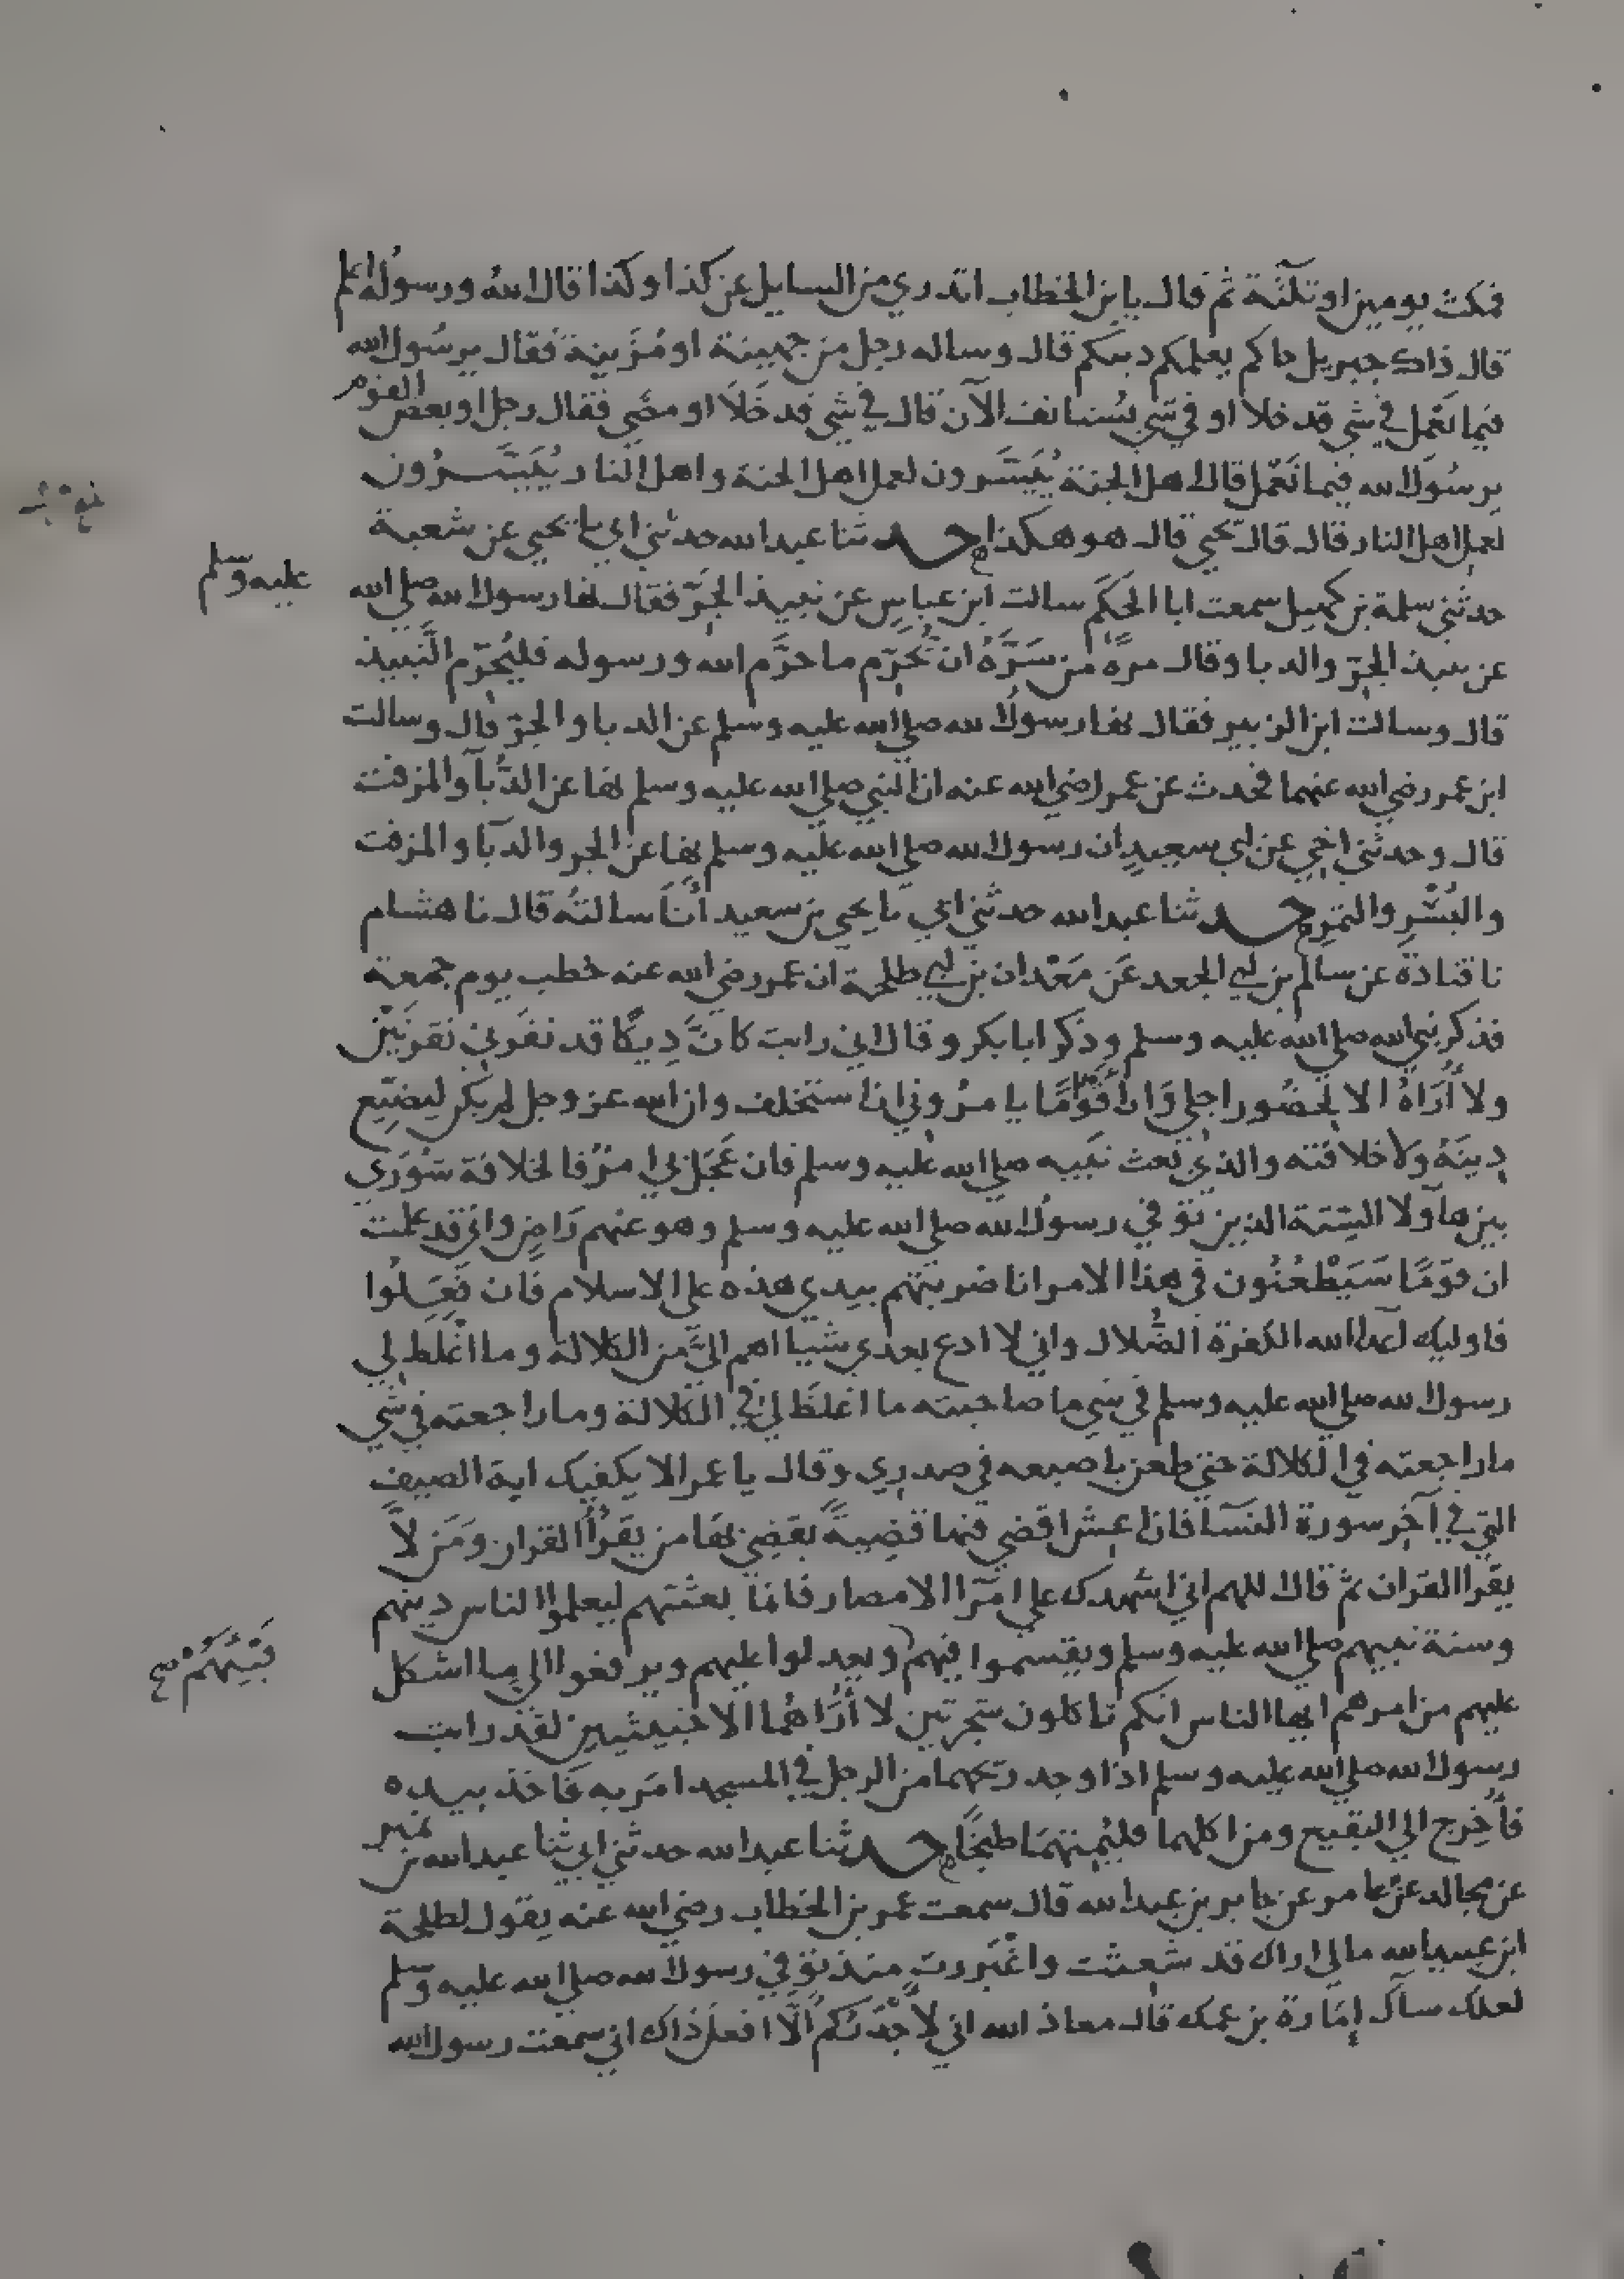 فمكث يومين او ثلثة ثم قال يا ابن الخطاب اتدري من السايل عن كذا وكذا قال الله ورسوله اعلم
قال ذاك جبريل جاكم يعلمكم دينكم قال وساله رجل من جهينة او مزينة فقال يرسول الله
فيما نعمل في شي قد خلا او في شي يستانف الآن قال في شي قد خلا او مضي فقال رجل او بعض القوم
يرسول الله فيما نعمل قال اهل الجنة يُيَسَّرون لعمل اهل الجنة واهل النار يُيَسَّرُون
لعمل اهل النار قال قال يحيي قال هو هكذا حدثنا عبد الله حدثني ابي نا يحيي عن شعبة
حدثني سلمة بن كهيل سمعت ابا الحكم سالت ابن عباس عن نبيذ الجر فقال نها رسول الله صلي الله عليه وسلم
عن نبيذ الجر والدبا وقال مرة من سَرَّهُ ان يُحَرِّم ما حرَّم الله ورسوله فليُحرِّم النَّبيذ
قال وسالت ابن الزبير فقال نها رسول الله صلي الله عليه وسلم عن الدبا والجر قال وسالت
ابن عمر رضي الله عنهما فحدث عن عمر رضي الله عنه ان النبي صلي الله عليه وسلم نها عن الدُّبآ والمزفت
قال وحدثني اخي عن ابي سعيد ان رسول الله صلي الله عليه وسلم نها عن الجر والدبآ والمزفت
والبُسْر والتمر حدثنا عبد الله حدثني ابي نا يحيي بن سعيد أنا سالته قال نا هشام
نا قتادة عن سالم بن ابي الجعد عن مَعْدان بن ابي طلحة ان عمر رضي الله عنه خطب يوم جمعة
فذكر نبي الله صلي الله عليه وسلم وذكر ابا بكر وقال اني رايت كانَّ دِيكًا قد نقرني نقرتَيْن
ولا أُرَاهُ الا لحُضُور اجلي وَان أقوامًا يامرُوني ان استخلف وان الله عز وجل لم يكن ليضيِّع
دِينَهُ وَلا خلافته والذي بعث نبيه صلي الله عليه وسلم فان عَجِلَ بي امرٌ فالخلافة شُورَي
بين هآولا الستة الذين توفي رسول الله صلي الله عليه وسلم وهو عنهم رَاضٍ واني قد علمت
ان قوْمًا سَيَطْعُنُون في هذا الامر انا ضربتهم بيدي هذه علي الاسلام فان فَعَلُوا
فاوليك اعدا الله الكفرة الضُّلال واني لا ادع بعدي شيا اهم اليَّ من الكلالة وما اغْلظ لي
رسول الله صلي الله عليه وسلم في شي ما صاحبته ما اغلظَ لي في الكلالة وما راجعته في شي
ما راجعته في الكلالة حتي طعن باصبعه في صدري وقال يا عمر الا يكفيك اية الصيف
التي في آخر سورة النسآ فان اعش اقضي فيها قضِيةً يقضِي بهَا من يقرُأ القران وَمَن لا
يقرا القران ثم قال اللهم اني اشهدك علي امرآ الامصار فانما بعثتهم ليعلموا الناس دينهم
وسنة نبيهم صلي الله عليه وسلم ويقسموا فيهم ويعدلوا عليهم ويرفعوا الي ما اشكل
فَيْئَهُمْ صح
عليهم من امرهم ايها الناس انكم تاكلون شجرتين لا أُرَاهُما الا خبيثيين لقد رايت
رسول الله صلي الله عليه وسلم اذا وجد ريحهما من الرجل في المسجد امَر به فَاخذ بيده
فأُخرِج الي البقيع ومن اكلهما فليُمِتهمَا طبخًا حدثنا عبد الله حدثني ابي ثنا عبد الله بن نمير
عن مجالد عن عامر عن جابر بن عبد الله قال سمعت عمر بن الخطاب رضي الله عنه يقول لطلحة
ابن عبيد الله ما لي اراك قد شعثت واغْبَررت منذ توفي رسول الله صلي الله عليه وسلم
لعلك سآك إمَارة بن عمك قال معاذ الله اني لاجْدَركُم ألَّا افعل ذاك اني سمعت رسول الله